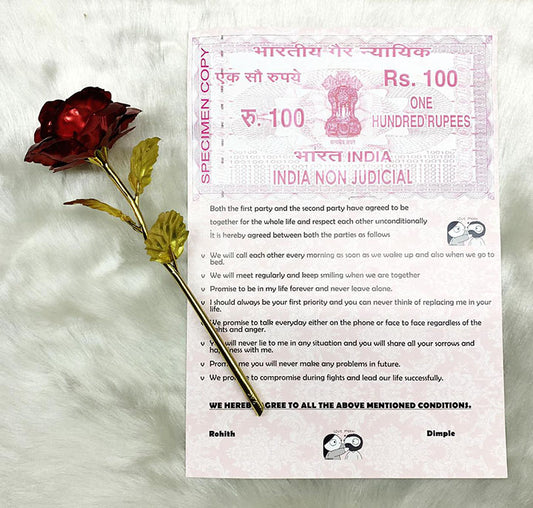 SPECIMEN COPY
भारतीय गैर न्यायिक
एक सौ रुपये
Rs. 100
रु. 100
ONE
HUNDRED RUPEES
भारत INDIA
INDIA NON JUDICIAL
Both the first party and the second party have agreed to be
together for the whole life and respect each other unconditionally
It is hereby agreed between both the parties as follows
We will call each other every morning as soon as we wake up and also when we go to
bed.
We will meet regularly and keep smiling when we are together
Promise to be in my life forever and never leave alone.
I should always be your first priority and you can never think of replacing me in your
life.
We promise to talk everyday either on the phone or face to face regardless of the
and anger.
will never lie to me in any situation and you will share all your sorrows and
with me.
me you will never make any problems in future.
We to compromise during fights and lead our life successfully.
WE TO ALL THE ABOVE MENTIONED CONDITIONS.
Rohith
Dimple